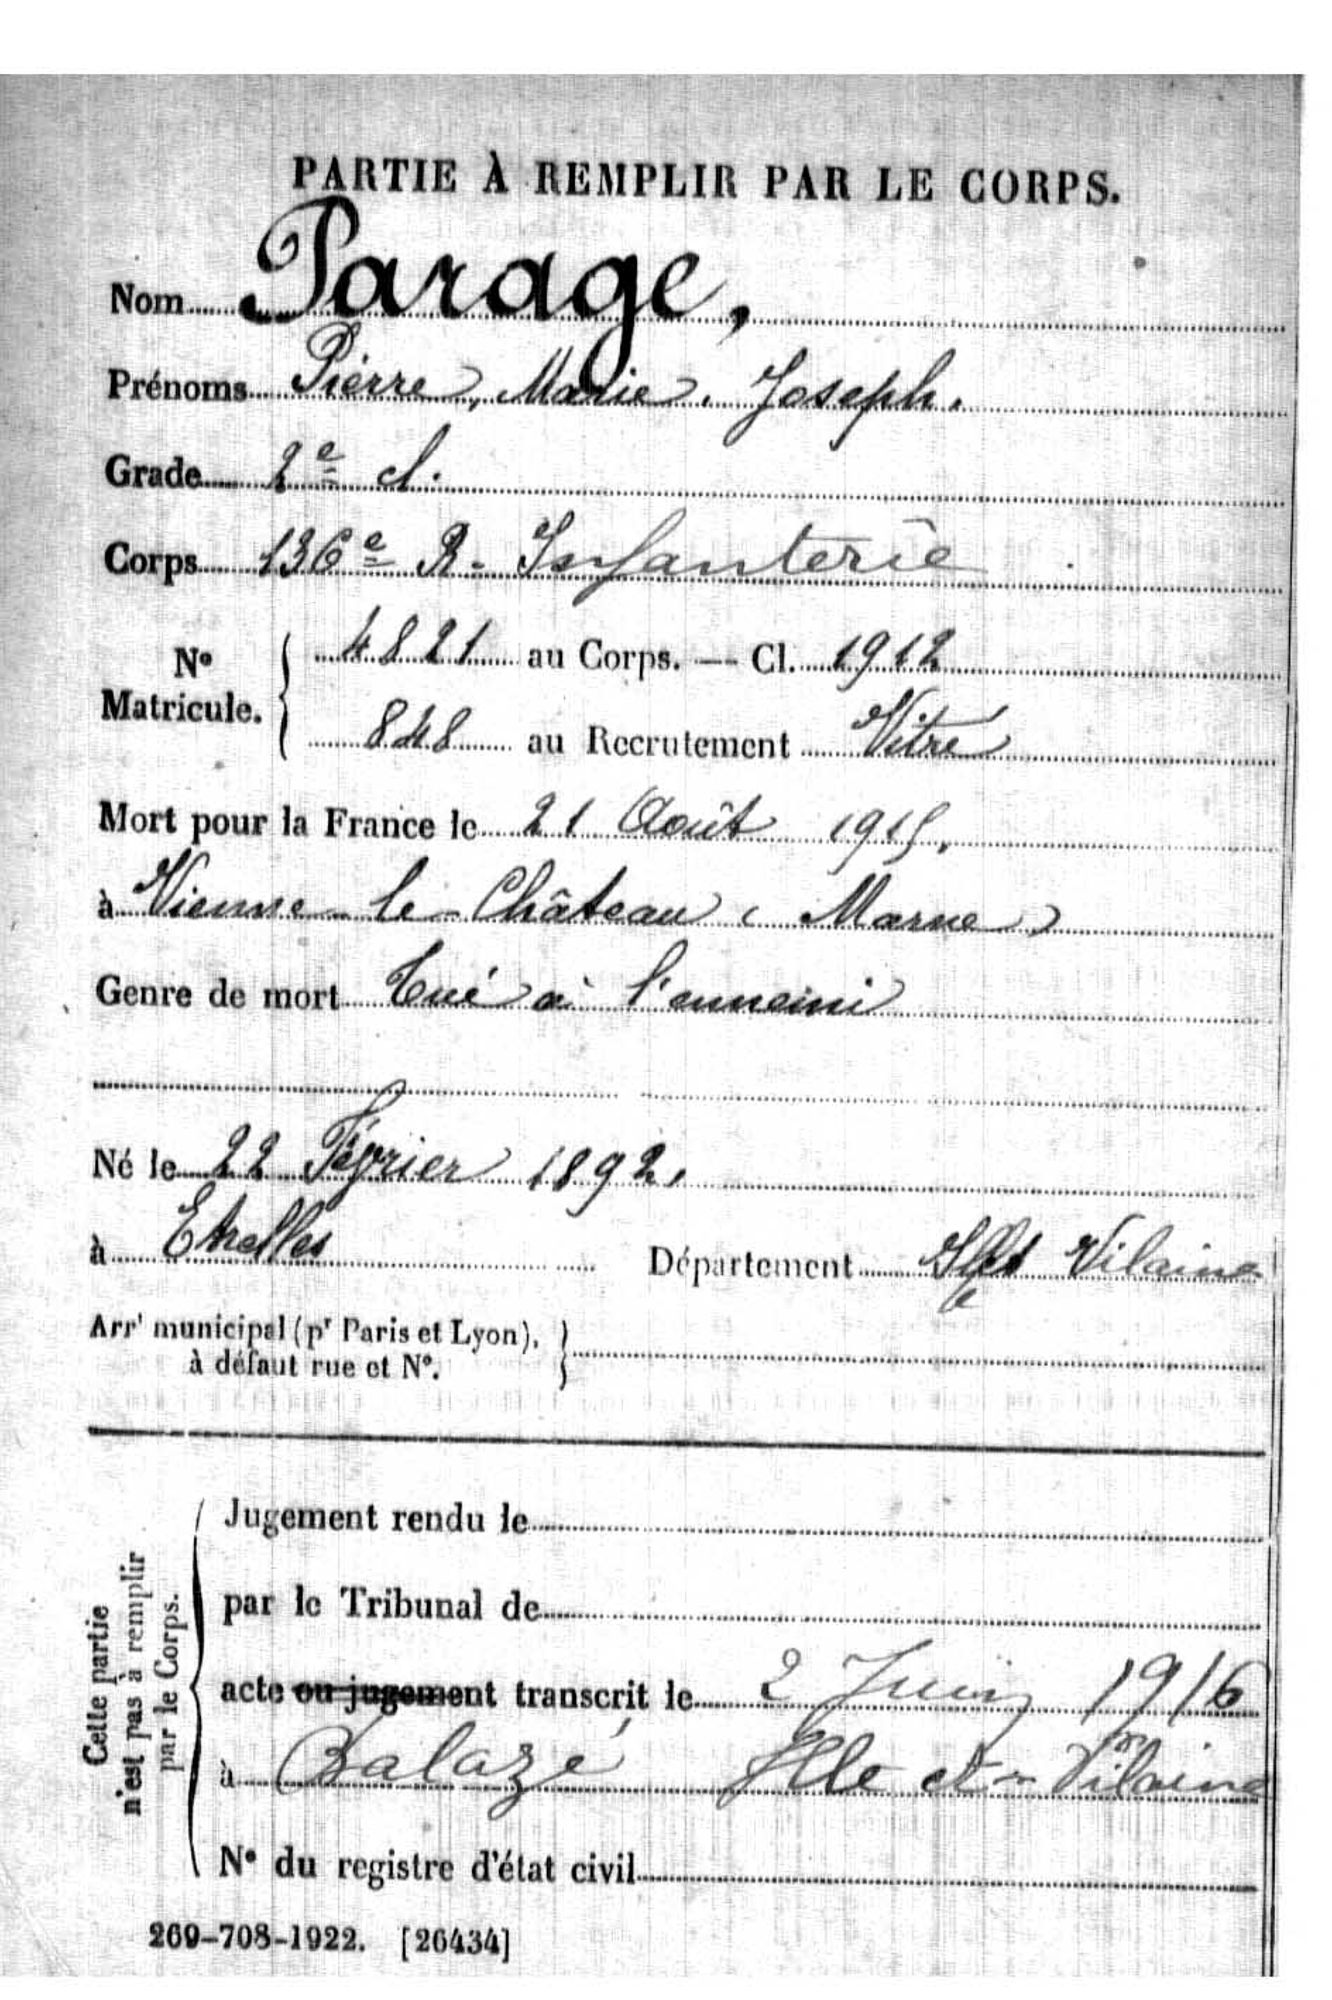 PARTIE À REMPLIR PAR LE CORPS.
Nom Parage,
Prénoms Pierre, Marie. Joseph.
Grade 2e cl.
Corps 136e R. Infanterie
No Matricule. { 4821 au Corps. — Cl. 1912
848 au Recrutement Vitré
Mort pour la France le 21 Août 1915.
à Vienne-le-Château (Marne)
Genre de mort Tué à l'ennemi
Né le 22 Février 1892.
à Etrelles Département Ille et Vilaine
Arrt municipal (pr Paris et Lyon), à défaut rue et No. }
Cette partie n'est pas à remplir par le Corps.
Jugement rendu le
par le Tribunal de
acte ou jugement transcrit le 2 Juin 1916
à Balazé Ille et-Vilaine
No du registre d'état civil
269-708-1922. [26434]